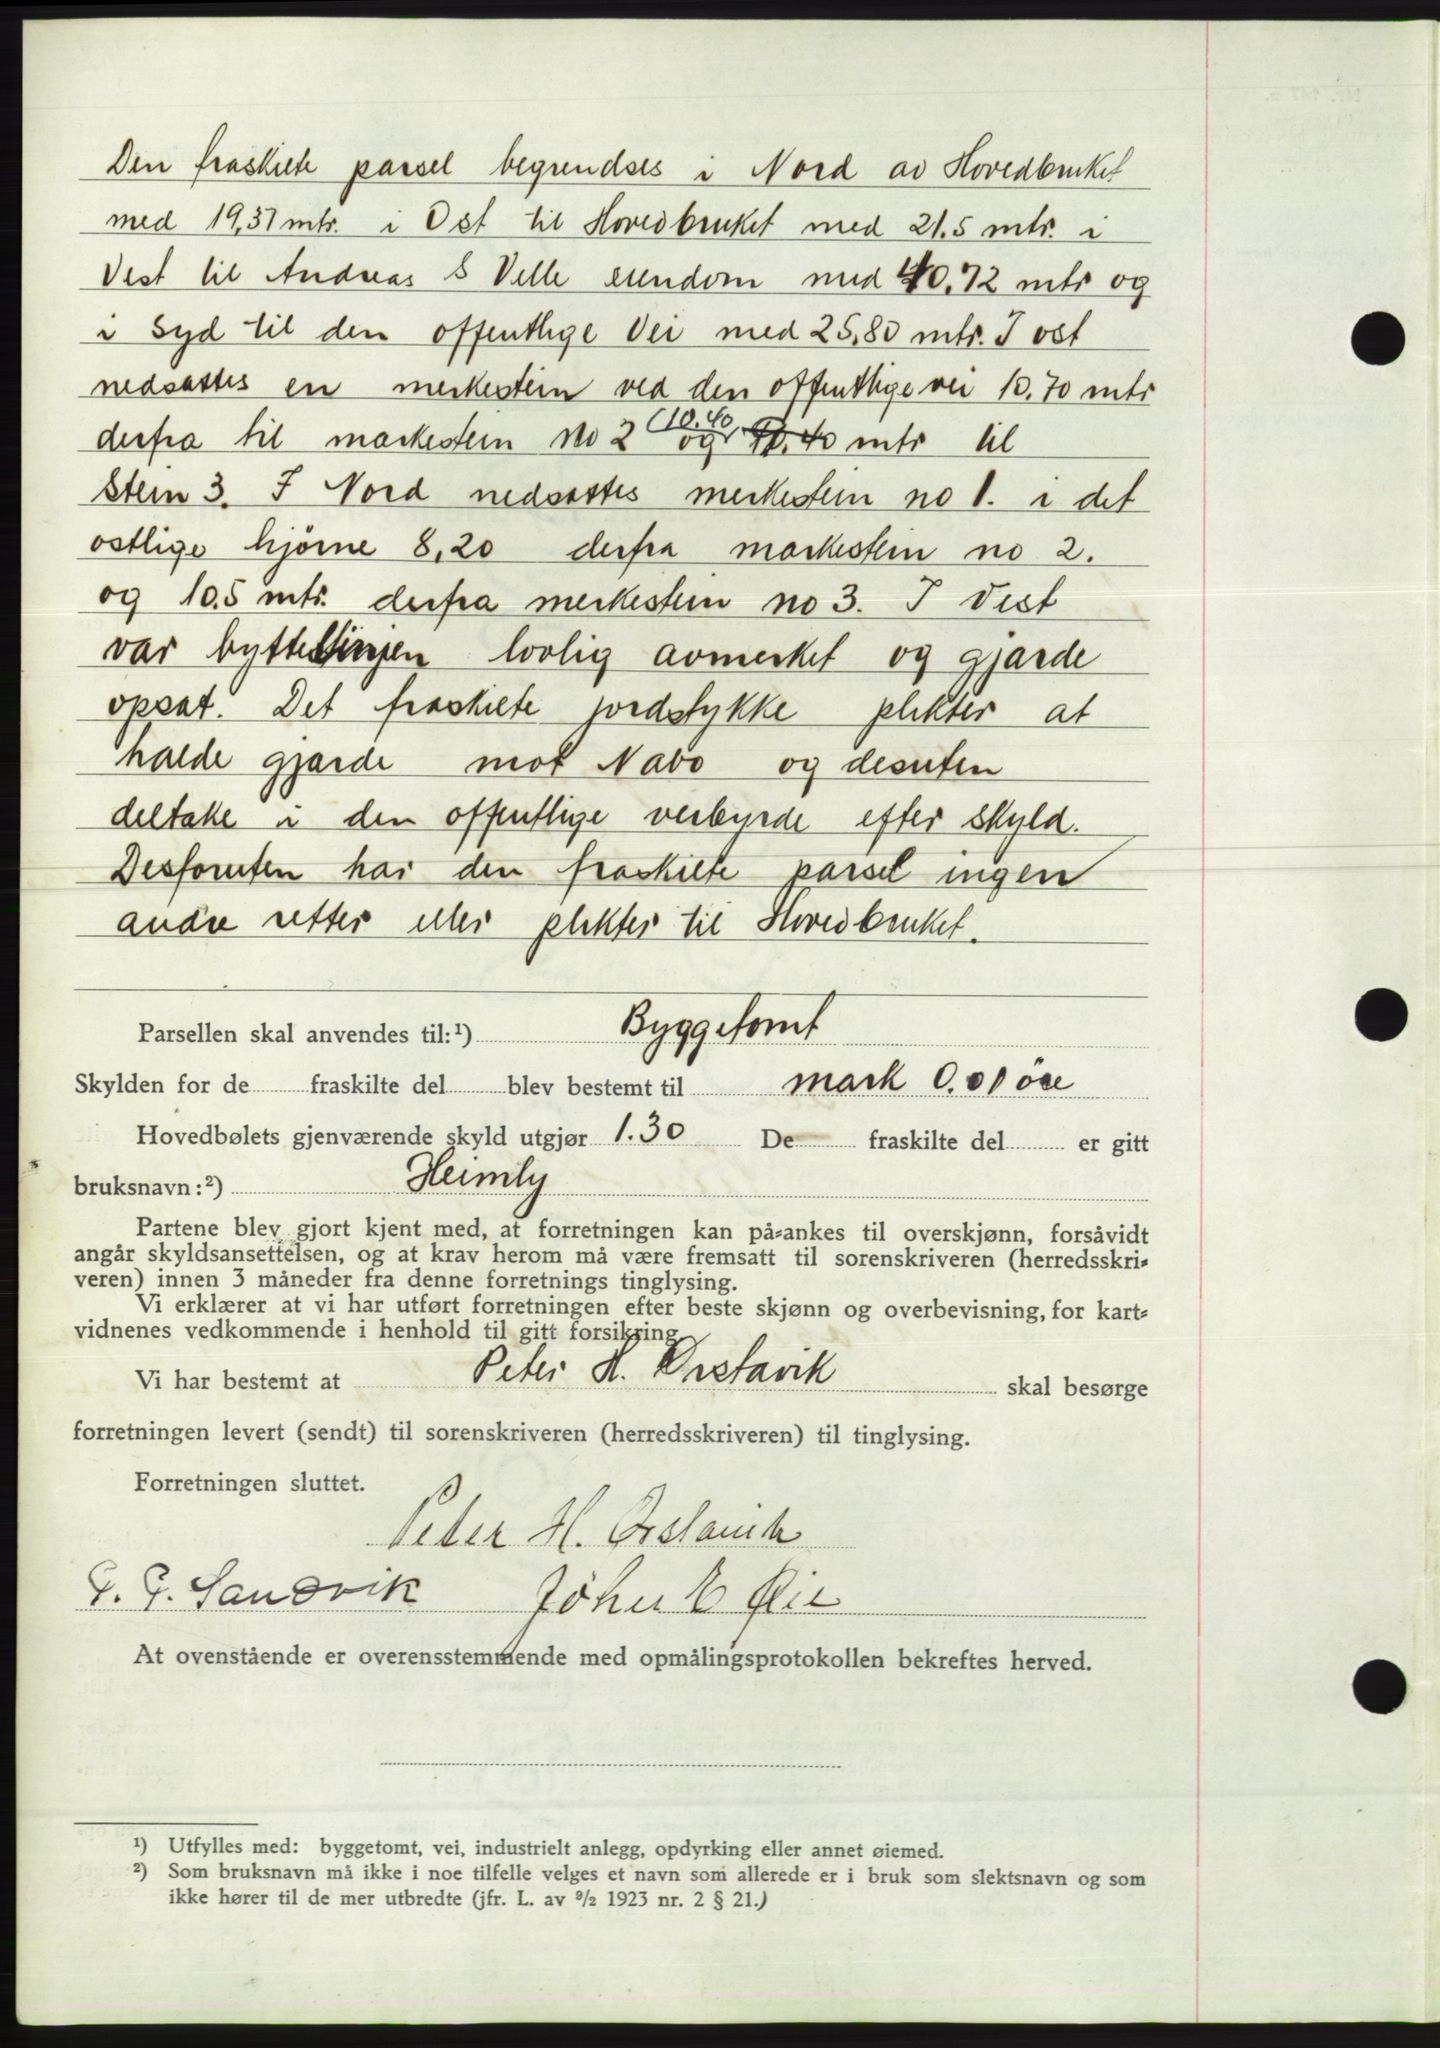 Den fraskilte parsel begrendses i Nord av Hovedbruket
med 19,37 mtr. i Ost til Hovedbruket med 21.5 mtr. i
Vest til Andreas S Velle eiendom med 40.72 mtr og
i Syd til den offentlige Vei med 25,80 mtr. I ost
nedsattes en merkestein ved den offentlige vei 10.70 mtr
derfra til markestein No 2 (10.40 og 10.40 mtr til
Stein 3. I Nord nedsattes merkestein no 1. i det
ostlige hjørne 8,20 derfra markestein no 2.
og 10.5 mtr. derfra merkestein no 3. I Vest
var byttelinjen lovlig avmerket og gjarde
opsat. Det fraskilte jordstykke plikter at
halde gjarde mot Nabo og desuten
deltake i den offentlige veibyrde efter skyld.
Desforuten har den fraskilte parsel ingen
andre retter eller plikter til Hovedbruket.
Parsellen skal anvendes til:¹) Byggetomt
Skylden for de fraskilte del blev bestemt til mark 0.01 øre
Hovedbølets gjenværende skyld utgjør 1.30 De fraskilte del er gitt
bruksnavn:²) Heimly
Partene blev gjort kjent med, at forretningen kan på-ankes til overskjønn, forsåvidt
angår skyldsansettelsen, og at krav herom må være fremsatt til sorenskriveren (herredsskri-
veren) innen 3 måneder fra denne forretnings tinglysing.
Vi erklærer at vi har utført forretningen efter beste skjønn og overbevisning, for kart-
vidnenes vedkommende i henhold til gitt forsikring.
Vi har bestemt at Peter H. Ørstavik skal besørge
forretningen levert (sendt) til sorenskriveren (herredsskriveren) til tinglysing.
Forretningen sluttet.
Peter H. Ørstavik
P. P. Sandvik Joher E Øie
At ovenstående er overensstemmende med opmålingsprotokollen bekreftes herved.
¹) Utfylles med: byggetomt, vei, industrielt anlegg, opdyrking eller annet øiemed.
²) Som bruksnavn må ikke i noe tilfelle velges et navn som allerede er i bruk som slektsnavn og som
ikke hører til de mer utbredte (jfr. L. av 9/2 1923 nr. 2 § 21.)